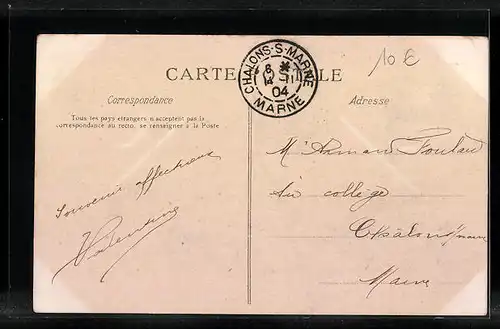 10 €
CARTE POSTALE
CHALONS-S-MARNE
MARNE
04
Correspondance
Adresse
Tous les pays étrangers n'acceptent pas la
correspondance au recto, se renseigner à la Poste
Souvenir affectueux
Valentine
Mr Armand
au collège
Châlons s/ marne
Marne